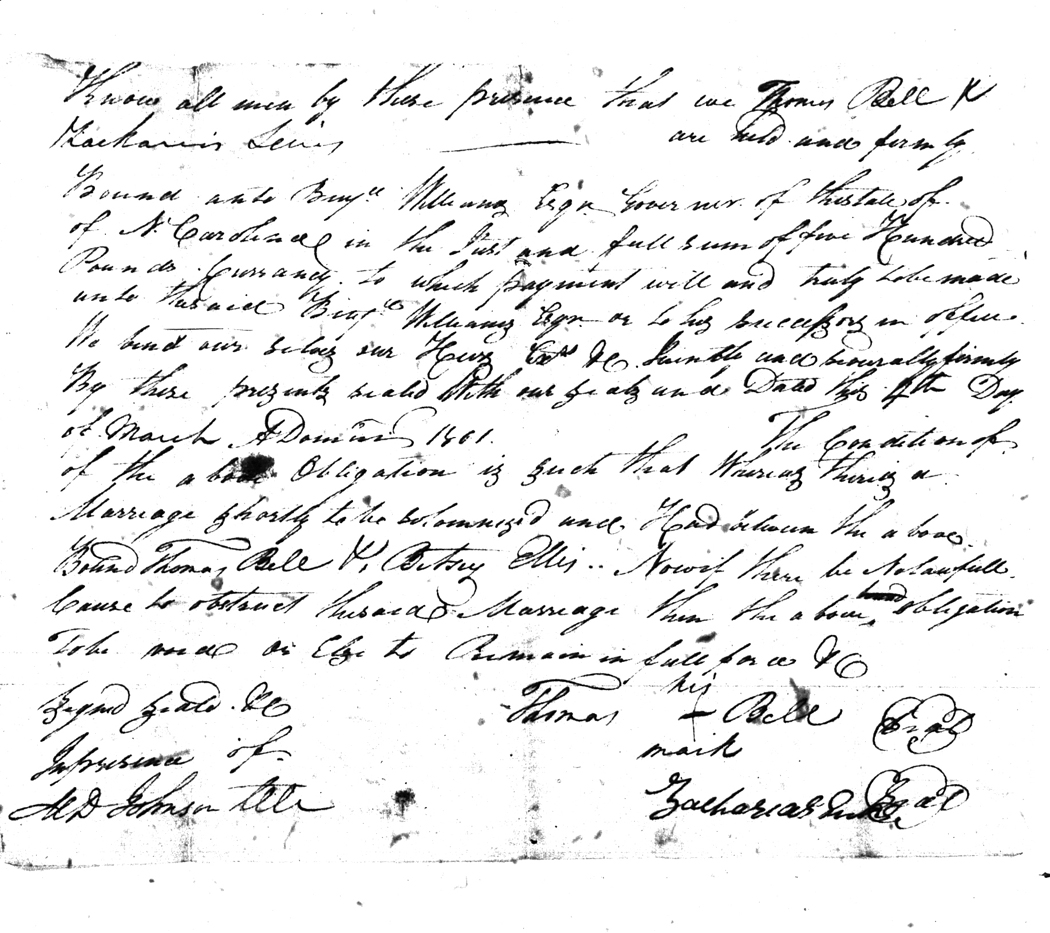 Know all men by these presence that we Thomas Bell &
Zacharias Lewis are held and firmly
Bound unto Benjn Williams Esqr Governer of thestate of
of N Carolina in the Just and full sum of five Hundred
Pounds Currancy to which payment will and truly tobe made
unto thesaid Benjn Williams Esqr or to his successors in office
We bind our selves our Heirs Exrs &c Jointly and severally firmly
By these presents sealed With our seals and Dated this 4th Day
of March ADomini 1801. The Condition of
of the above Obligation is such that Whereas thereis a
Marriage shortly to be solomnized and Had between the above
Bound Thomas Bell & Betsey Ellis .. Nowif there be Nolawfull
Cause to obstruct thesaid Marriage then the above bound obligation
Tobe void or Else to Remain in full force &c
Signed Seald &c
Inpresence of
Thomas his mark Bell Seal
M D Johnson Zacharias Seal